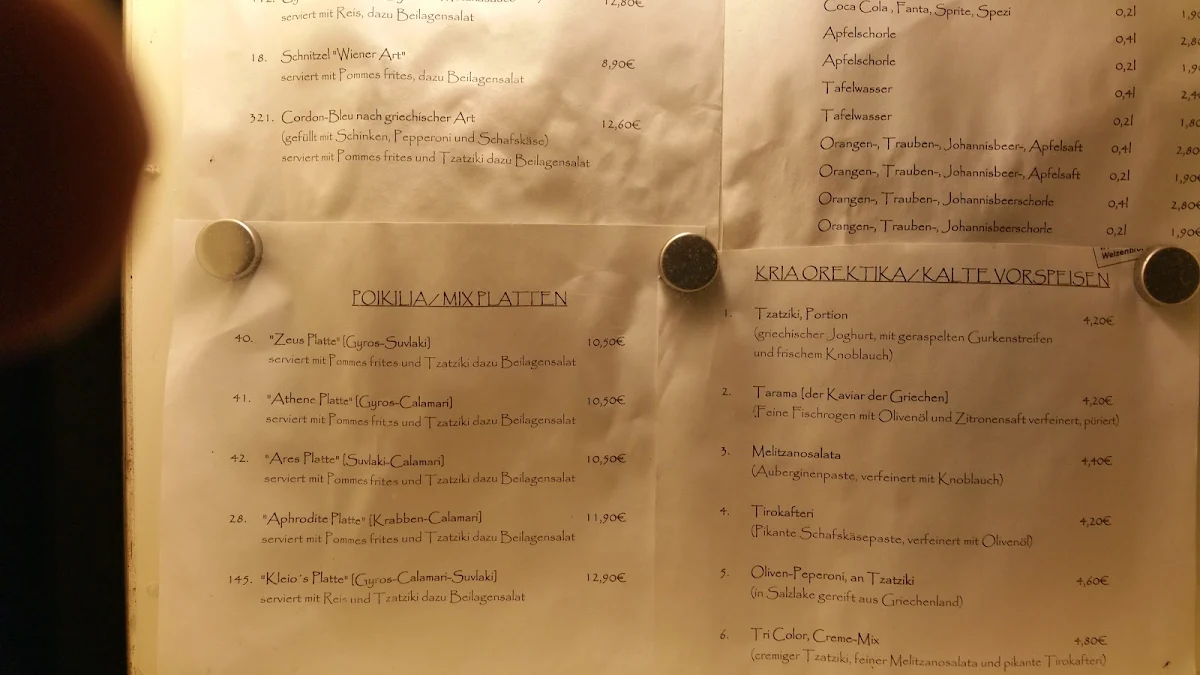 12,80€
serviert mit Reis, dazu Beilagensalat
18. Schnitzel "Wiener Art" 8,90€
serviert mit Pommes frites, dazu Beilagensalat
321. Cordon-Bleu nach griechischer Art 12,60€
(gefüllt mit Schinken, Pepperoni und Schafskäse)
serviert mit Pommes frites und Tzatziki dazu Beilagensalat
Coca Cola, Fanta, Sprite, Spezi 0,2l 1,9
Apfelschorle 0,4l 2,8
Apfelschorle 0,2l 1,9
Tafelwasser 0,4l 2,4
Tafelwasser 0,2l 1,80
Orangen-, Trauben-, Johannisbeer-, Apfelsaft 0,4l 2,80
Orangen-, Trauben-, Johannisbeer-, Apfelsaft 0,2l 1,90€
Orangen-, Trauben-, Johannisbeerschorle 0,4l 2,80€
Orangen-, Trauben-, Johannisbeerschorle 0,2l 1,90€
POIKILIA/MIX PLATTEN
40. "Zeus Platte" [Gyros-Suvlaki] 10,50€
serviert mit Pommes frites und Tzatziki dazu Beilagensalat
41. "Athene Platte" [Gyros-Calamari] 10,50€
serviert mit Pommes frites und Tzatziki dazu Beilagensalat
42. "Ares Platte" [Suvlaki-Calamari] 10,50€
serviert mit Pommes frites und Tzatziki dazu Beilagensalat
28. "Aphrodite Platte" [Krabben-Calamari] 11,90€
serviert mit Pommes frites und Tzatziki dazu Beilagensalat
145. "Kleio´s Platte" [Gyros-Calamari-Suvlaki] 12,90€
serviert mit Reis und Tzatziki dazu Beilagensalat
KRIA OREKTIKA/KALTE VORSPEISEN
1. Tzatziki, Portion 4,20€
(griechischer Joghurt, mit geraspelten Gurkenstreifen
und frischem Knoblauch)
2. Tarama [der Kaviar der Griechen] 4,20€
(Feine Fischrogen mit Olivenöl und Zitronensaft verfeinert, püriert)
3. Melitzanosalata 4,40€
(Auberginenpaste, verfeinert mit Knoblauch)
4. Tirokafteri 4,20€
(Pikante Schafskäsepaste, verfeinert mit Olivenöl)
5. Oliven-Peperoni, an Tzatziki 4,60€
(in Salzlake gereift aus Griechenland)
6. Tri Color, Creme-Mix 4,80€
(cremiger Tzatziki, feiner Melitzanosalata und pikante Tirokafteri)